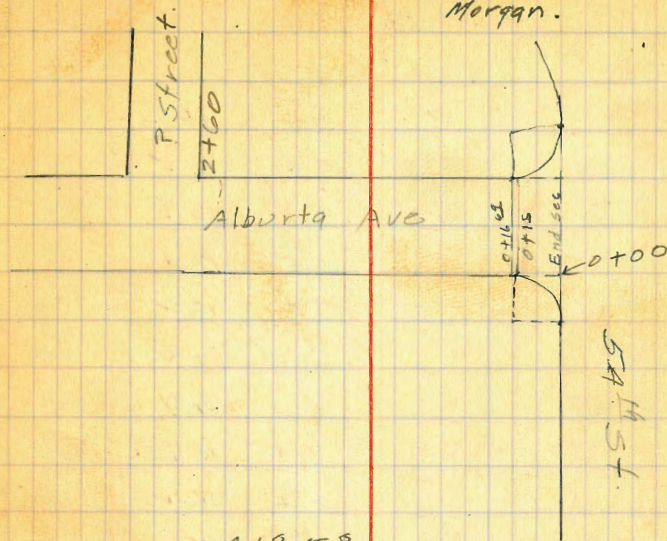 Morgan.
? Street.
2+60
Alburta Ave
0+15
End sec
0+00
54th St